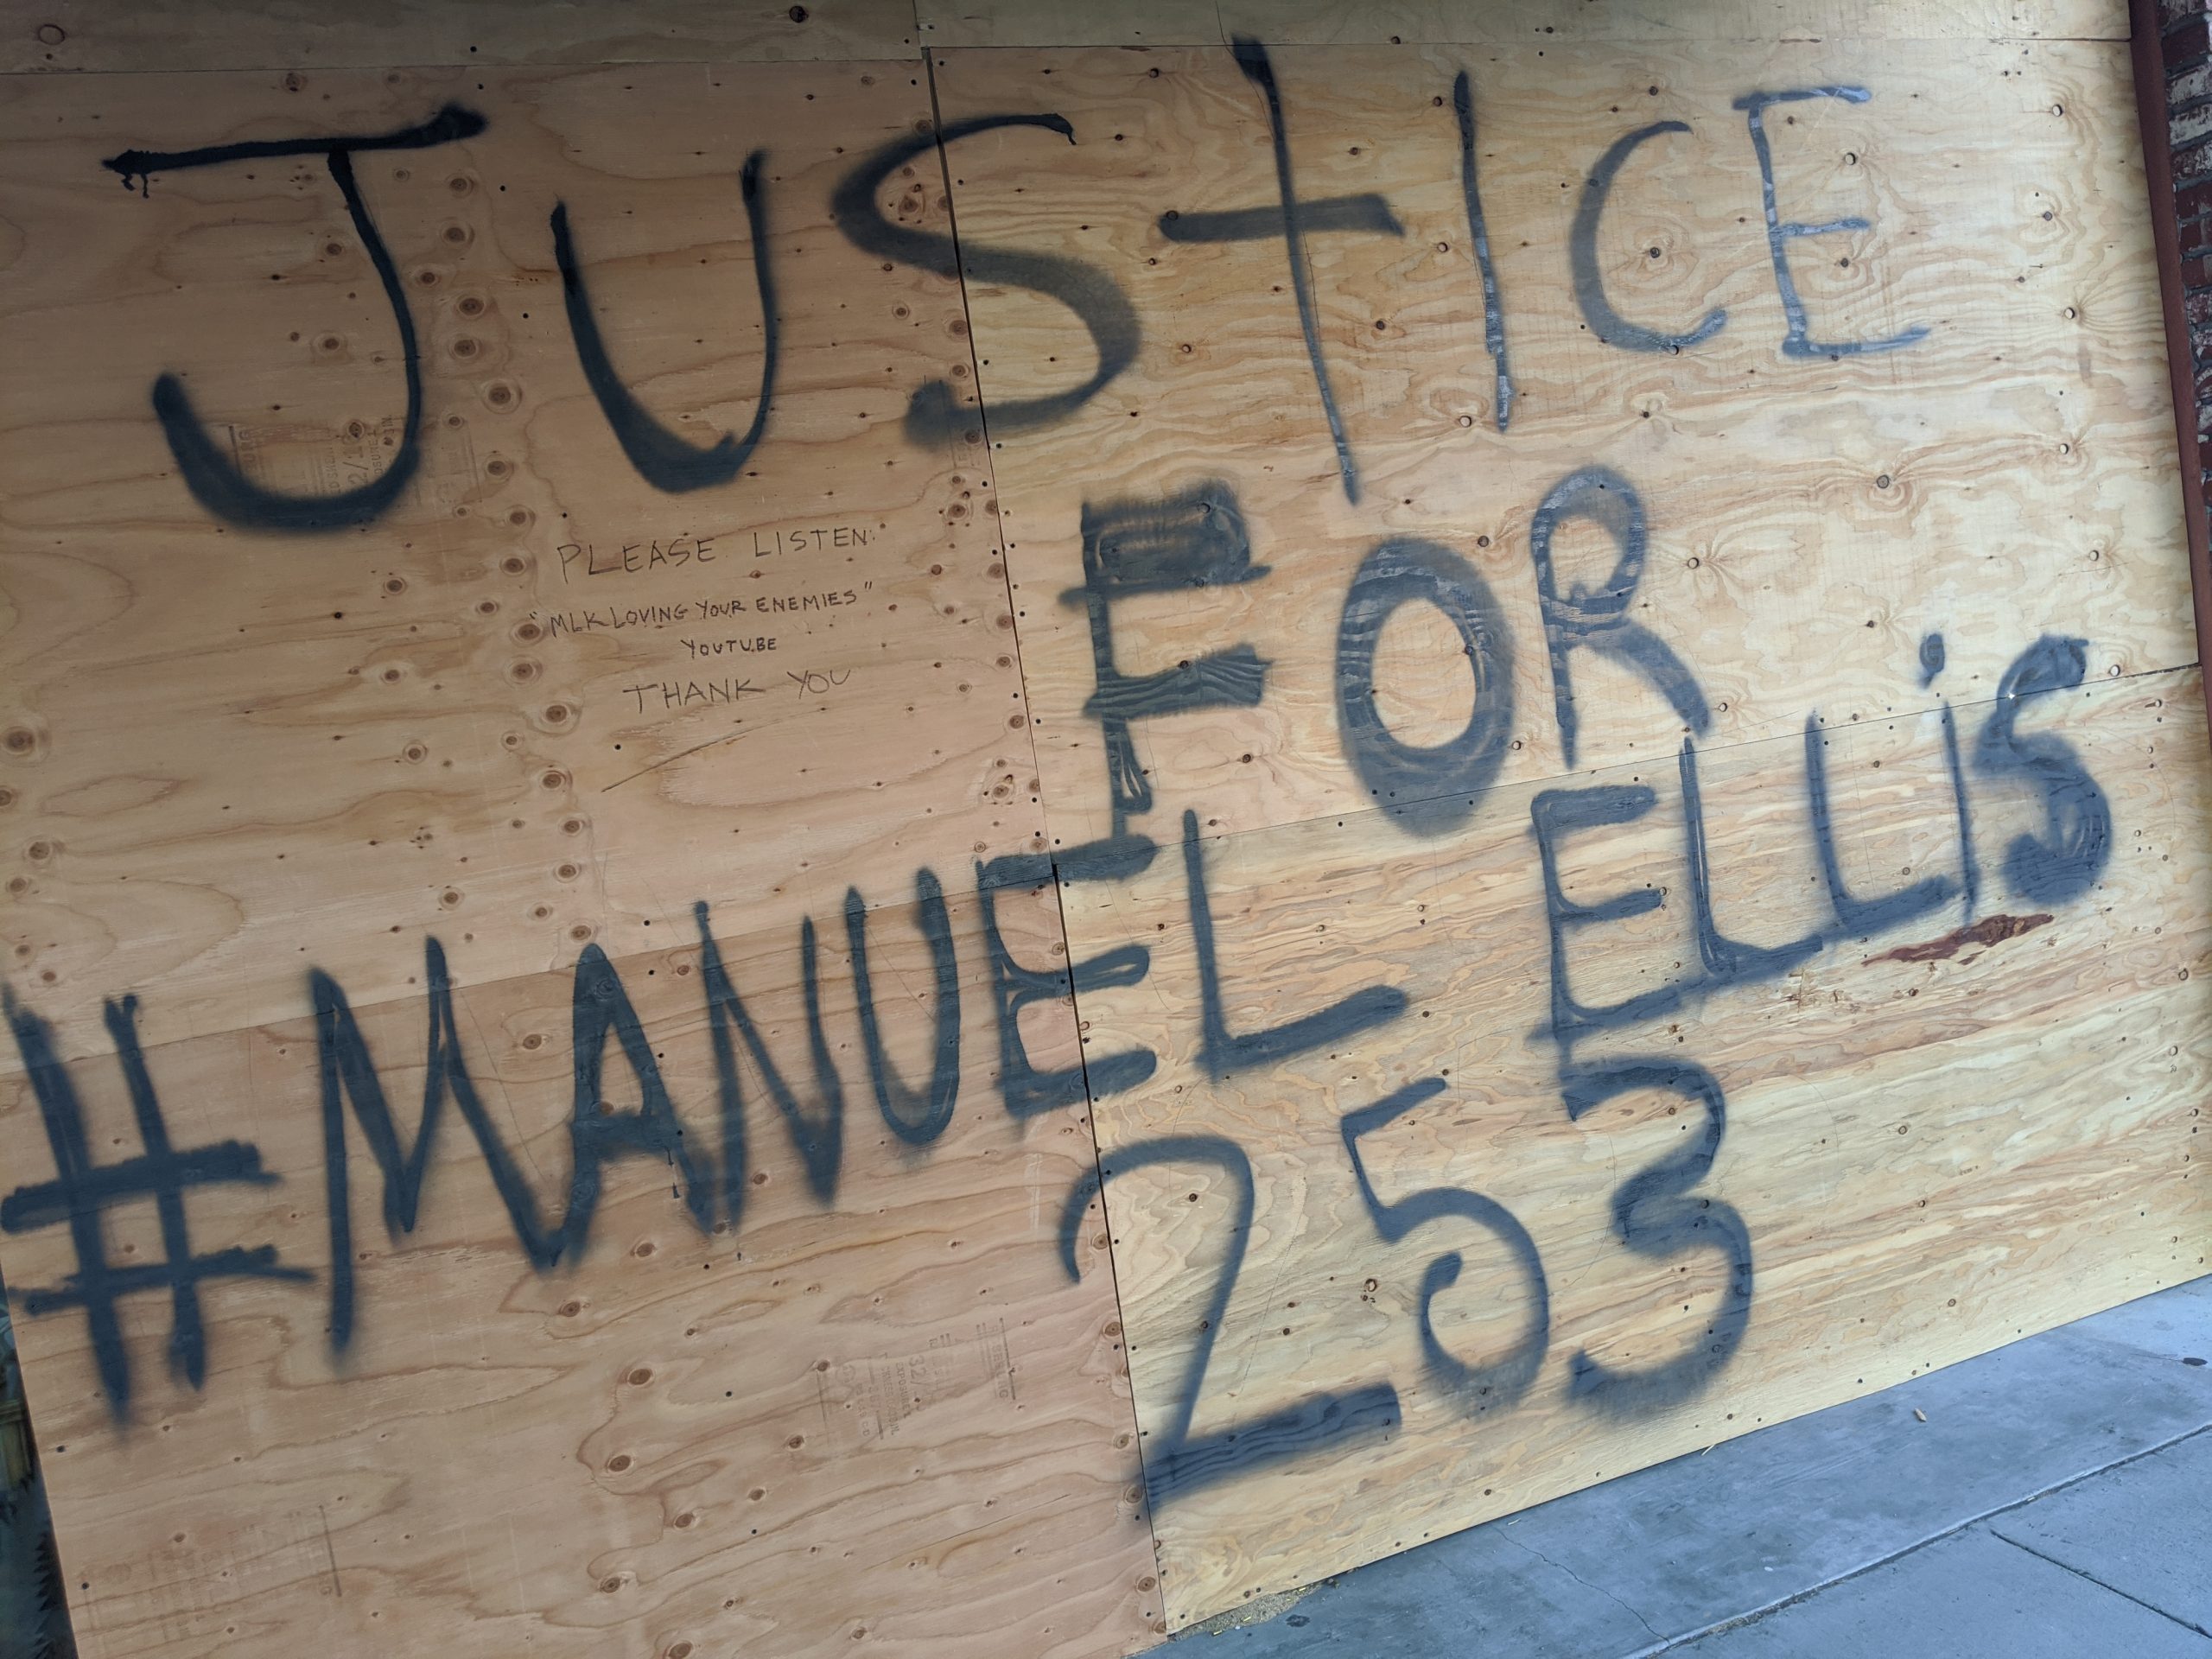 JUSTICE
PLEASE LISTEN:
"MLK LOVING YOUR ENEMIES"
YOUTUBE
THANK YOU
FOR
#MANUEL ELLiS
253